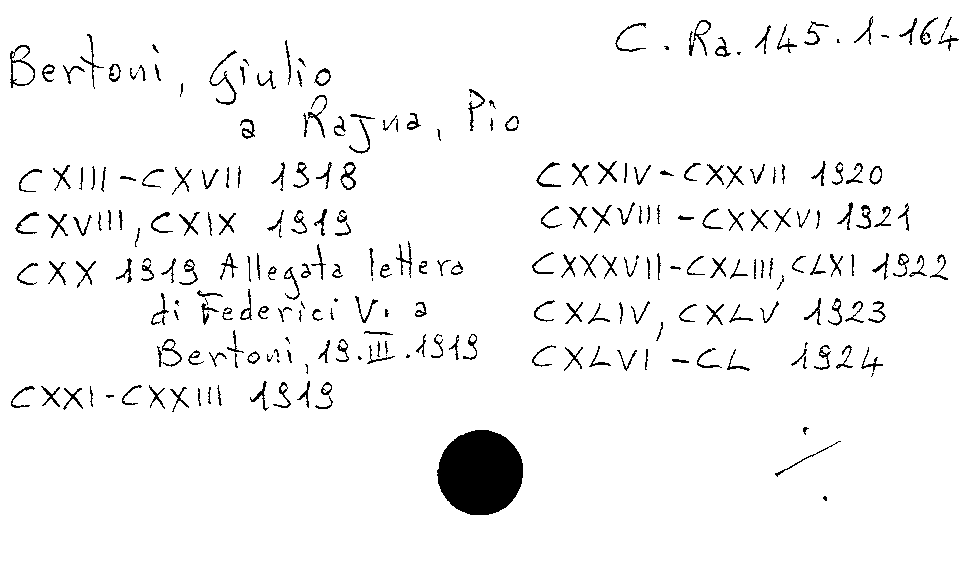 C. Ra. 145. 1-164
Bertoni, Giulio
a Rajna, Pio
CXIII-CXVII 1918
CXVIII, CXIX 1919
CXX 1919 Allegata lettera
di Federici V. a
Bertoni, 19.III.1919
CXXI-CXXIII 1919
CXXIV-CXXVII 1920
CXXVIII-CXXXVI 1921
CXXXVII-CXLIII, CLXI 1922
CXLIV, CXLV 1923
CXLVI-CL 1924
./.